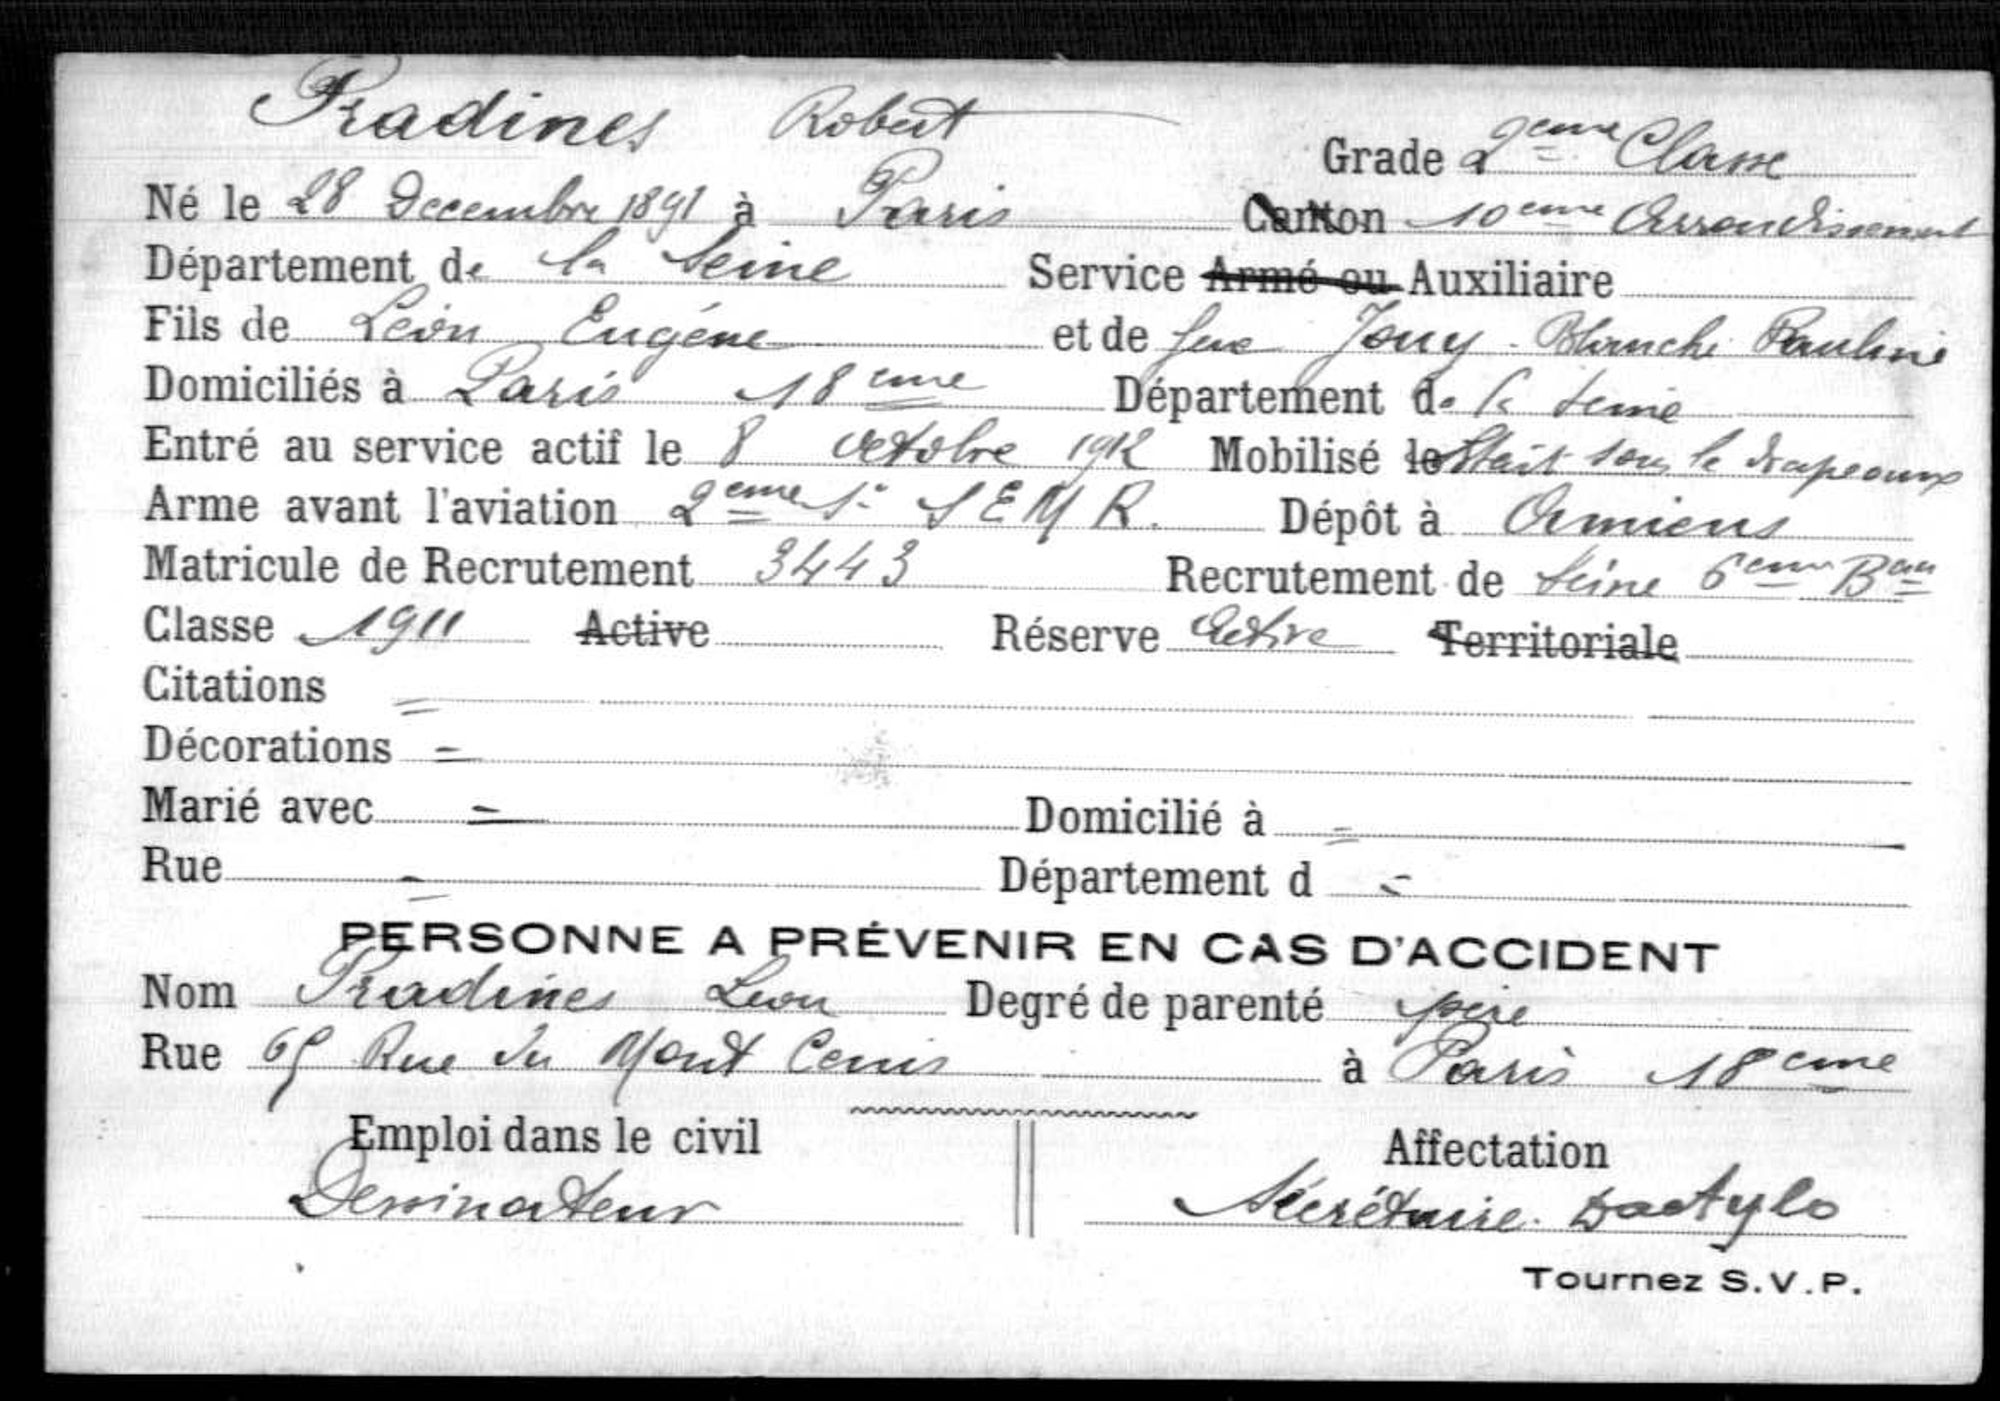 Pradines Robert
Grade 2eme Classe
Né le 28 Decembre 1891 à Paris Canton 10eme Arrondissement
Département de la Seine Service Armé ou Auxiliaire
Fils de Léon Eugéne et de feue Jouy - Blanche Pauline
Domiciliés à Paris 18eme Département de la Seine
Entré au service actif le 8 octobre 1912 Mobilisé le était sous le drapeaux
Arme avant l'aviation 2eme S. S E M R. Dépôt à Amiens
Matricule de Recrutement 3443 Recrutement de Seine 6eme Bau
Classe 1911 Active Réserve Active Territoriale
Citations =
Décorations =
Marié avec = Domicilié à =
Rue = Département d =
PERSONNE A PRÉVENIR EN CAS D'ACCIDENT
Nom Pradines Leon Degré de parenté père
Rue 65 Rue du Mont Cenis à Paris 18eme
Emploi dans le civil Affectation
Dessinateur Sécrétaire. Dactylo
Tournez S.V.P.